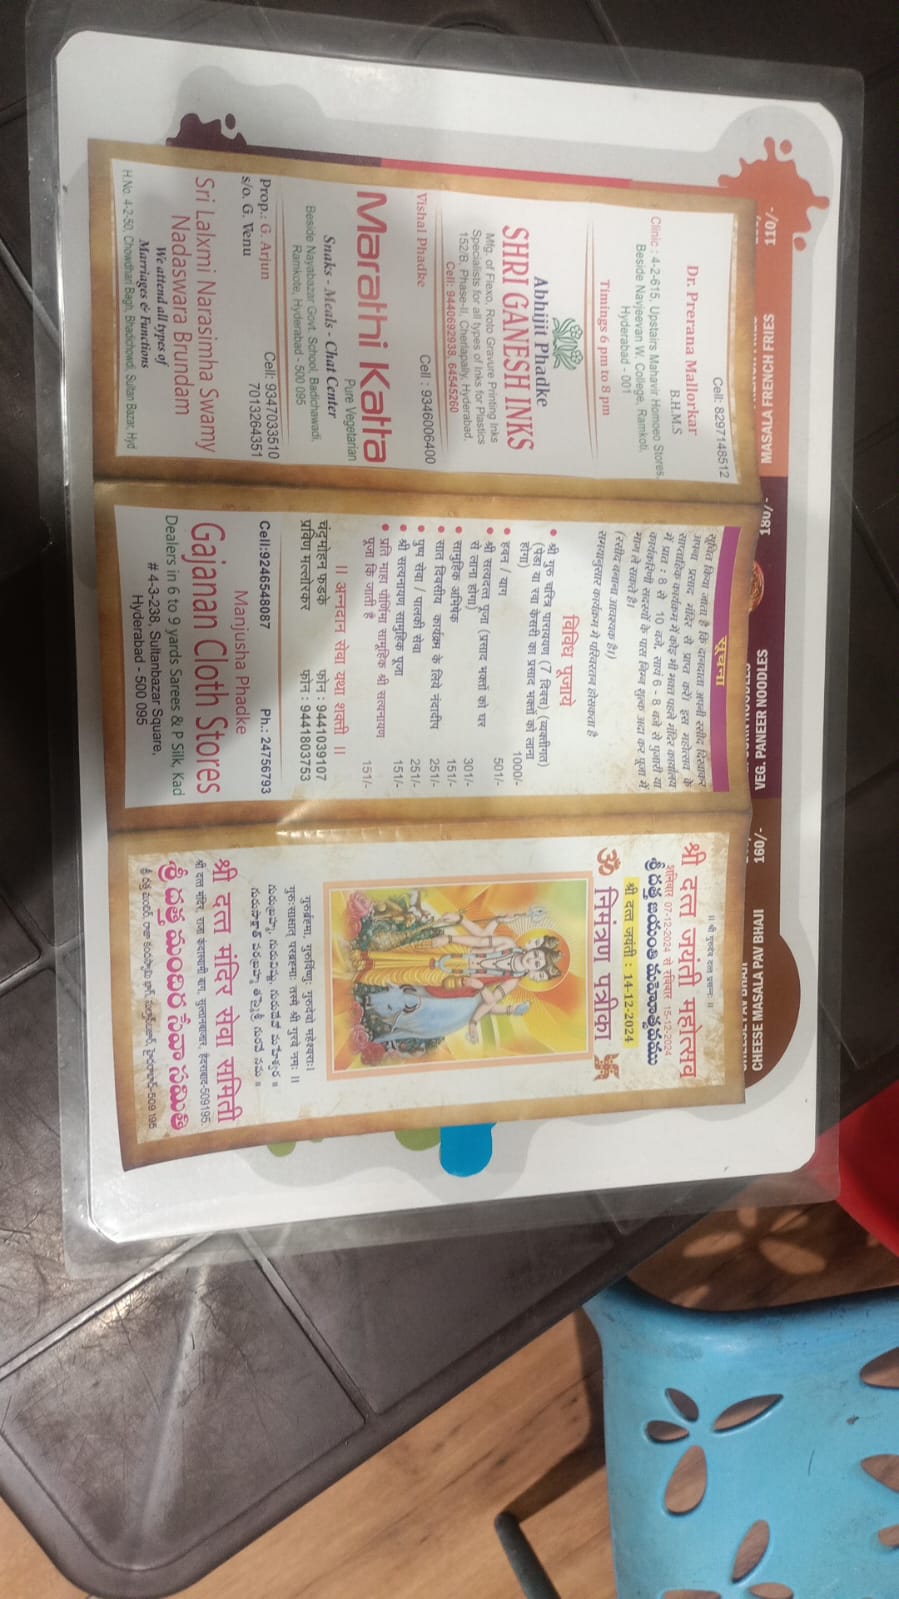 Cell: 8297148512
Dr. Prerana Mallorkar
B.H.M.S
Clinic : 4-2-615, Upstairs Mahavir Homoeo Stores,
Beside Navjeevan W. College, Ramkoti,
Hyderabad - 001
Timings 6 pm to 8 pm
Abhijit Phadke
SHRI GANESH INKS
Mfg. of Flexo, Roto Gravure Printing Inks
Specialists for all types of Inks for Plastics
152/B, Phase-II, Cherlapally, Hyderabad,
Cell: 9440692938, 64545260
Vishal Phadke Cell : 9346006400
Marathi Katta
Pure Vegetarian
Snaks - Meals - Chat Center
Beside Nayabazar Govt. School, Badichawadi,
Ramkote, Hyderabad - 500 095
Prop.: G. Arjun Cell: 9347033510
s/o. G. Venu 7013264351
Sri Lalxmi Narasimha Swamy
Nadaswara Brundam
We attend all types of
Marriages & Functions
H.No. 4-2-50, Chowdhari Bagh, Bhadichowdi, Sultan Bazar, Hyd
सूचना
सूचित किया जाता है कि दानदाता अपनी रसीद दिखाकर
अपना प्रसाद मंदिर से प्राप्त करें। इस महोत्सव के
साप्ताहिक कार्यक्रम में कोई भी भक्त पहले मंदिर कार्यालय
में प्रातः 8 से 10 बजे, सायं 6 - 8 बजे से पुजारी या
कार्यकारिणी सदस्यों के पास निम्न शुल्क अदा कर पूजा में
भाग ले सकते है।
(रसीद बनाना आवश्यक है।)
समयानुसार कार्यक्रम में परिवर्तन होसकता है
विविध पूजाये
• श्री गुरू चरित्र पारायण (7 दिवस) (व्यक्तीगत)
(पेडा या रवा केसरी का प्रसाद भक्तों को लाना
होगा) 1000/-
• हवन / याग 501/-
• श्री सत्यदत्त पूजा (प्रसाद भक्तों को घर
से लाना होगा) 301/-
• सामुहिक अभिषेक 151/-
• सात दिवसीय कार्यक्रम के लिये नंदादीप 251/-
• पुष्प सेवा / पालकी सेवा 251/-
• श्री सत्यनायण सामुहिक पूजा 151/-
• प्रति माहा पोर्णिमा सामुहिक श्री सत्यनायण
पूजा कि जाती है 151/-
।। अन्नदान सेवा यथा शक्ती ।।
चंद्रमोहन फडके फोन : 9441039107
प्रविण मल्लोरकर फोन : 9441803753
Cell:9246548087 Ph.: 24756793
Manjusha Phadke
Gajanan Cloth Stores
Dealers in 6 to 9 yards Sarees & P Silk, Kad
# 4-3-238, Sultanbazar Square,
Hyderabad - 500 095
।। श्री गुरुदेव दत्त प्रसन्नः ।।
श्री दत्त जयंती महोत्सव
शनिवार 07-12-2024 से रविवार 15-12-2024
శ్రీ దత్త జయంతి మహోత్సవము
श्री दत्त जयंती : 14-12-2024
ॐ निमंत्रण पत्रीका 卐
गुरुर्ब्रह्मा, गुरुर्विष्णु: गुरुदेवो महेश्वराः।
गुरुः साक्षात् परब्रह्मः तस्मै श्री गुरवे नमः ।।
గురుబ్రహ్మా, గురువిష్ణు, గురుదేవో మహేశ్వర ॥
గురుసాక్షాత్ పరబ్రహ్మా తస్మైశ్రీ గురవే నమః ॥
श्री दत्त मंदिर सेवा समिती
श्री दत्त मंदिर, राजा कंदास्वामी बाग, सुल्तानबाजार, हैदराबाद-509195.
శ్రీ దత్త మందిర సేవా సమితి
శ్రీ దత్త మందిర్, రాజా కందస్వామి బాగ్, సుల్తాన్‌బజార్, హైదరాబాద్-509 195
110/-
MASALA FRENCH FRIES
180/-
VEG. PANEER NOODLES
160/-
CHEESE MASALA PAV BHAJI